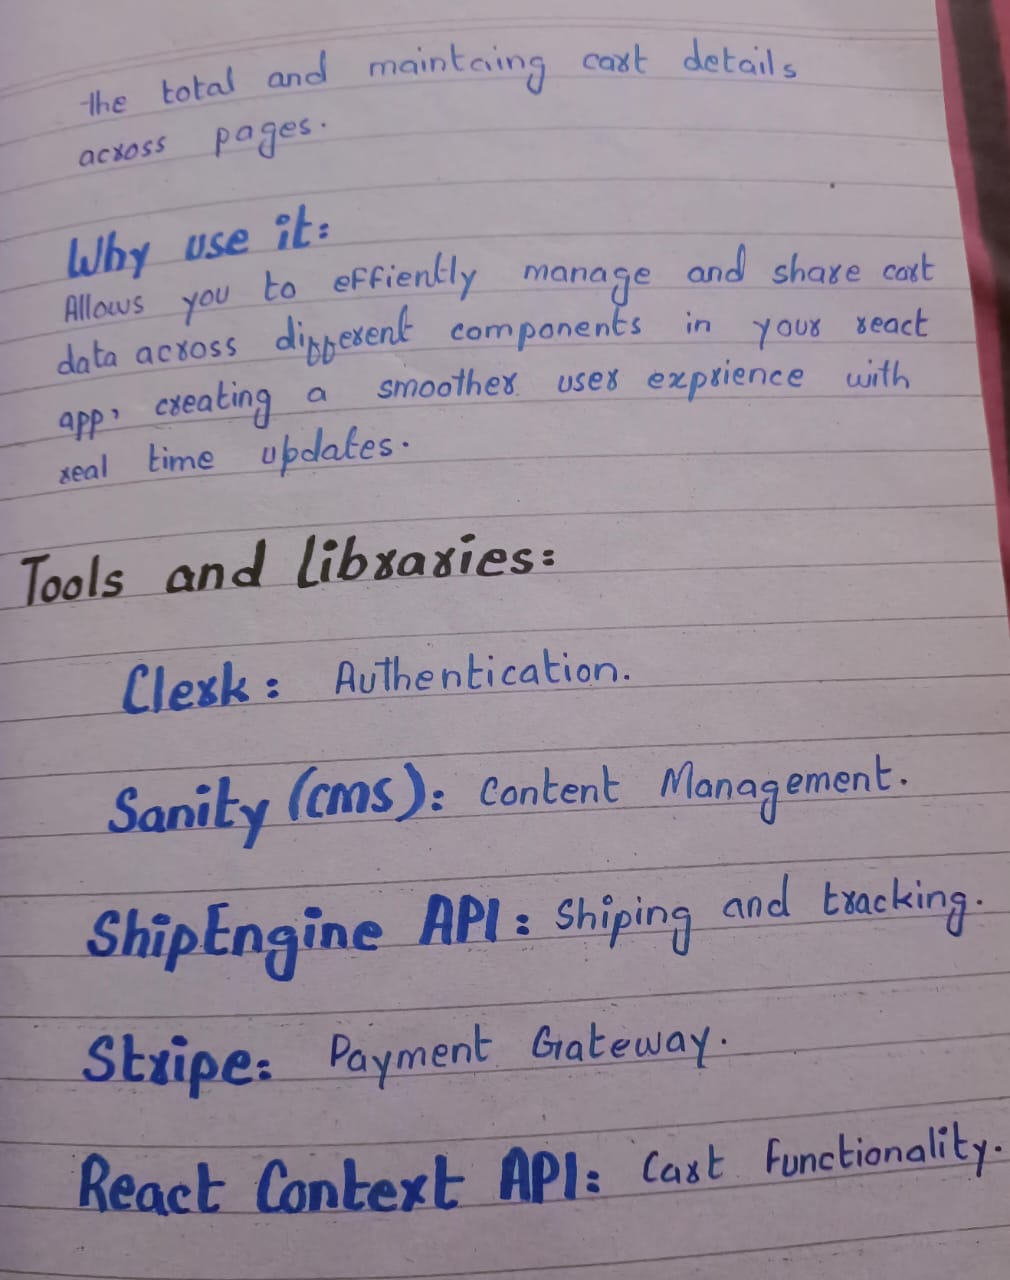 the total and maintaing cart details
across pages.
Why use it:
Allows you to effiently manage and share cart
data across different components in your react
app, creating a smoother user exprience with
real time updates.
Tools and libraries:
Clerk: Authentication.
Sanity (cms): Content Management.
ShipEngine API: Shiping and tracking.
Stripe: Payment Gateway.
React Context API: Cart Functionality.